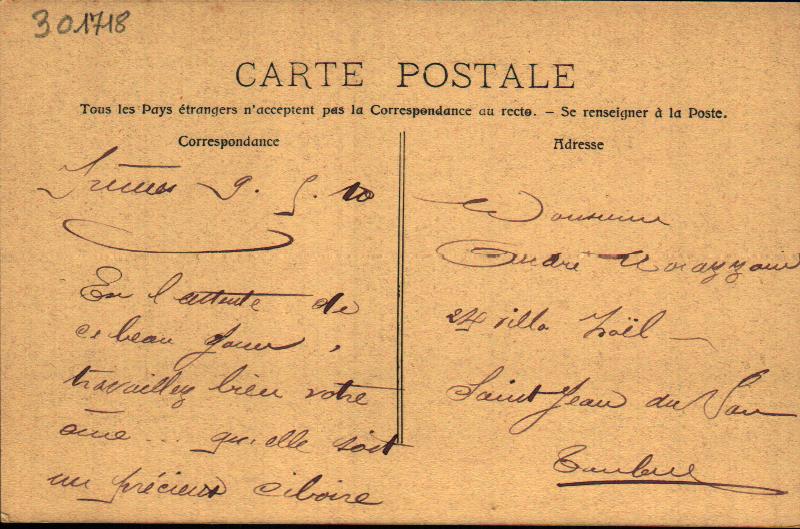 301718
CARTE POSTALE
Tous les Pays étrangers n'acceptent pas la Correspondance au recto. – Se renseigner à la Poste.
Correspondance
9. 5. 10
En l'attente de
ce beau jour,
travaillez bien votre
âme... qu'elle soit
un précieux ciboire
Adresse
Monsieur
André
24 villa Noël
Saint Jean du Var
Toulon